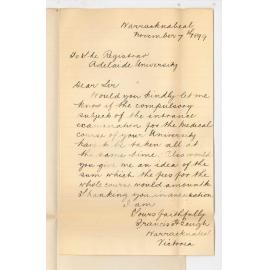 Warracknabeal
November 7th 1899
To The Registrar
Adelaide University
Dear Sir
Would you kindly let me
know if the compulsory
subject of the entrance
examination for the medical
course of your University
have to be taken all at
the same time. Also would
you give me an idea of the
sum which the fees for the
whole course would amount to
Thanking you in anticipation
I am
Yours faithfully
Francis H
Warracknabeal
Victoria